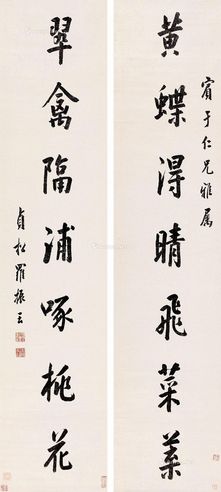 賓于仁兄雅属
黄蝶得晴飛菜葉
翠禽隔浦啄桃花
貞松羅振玉